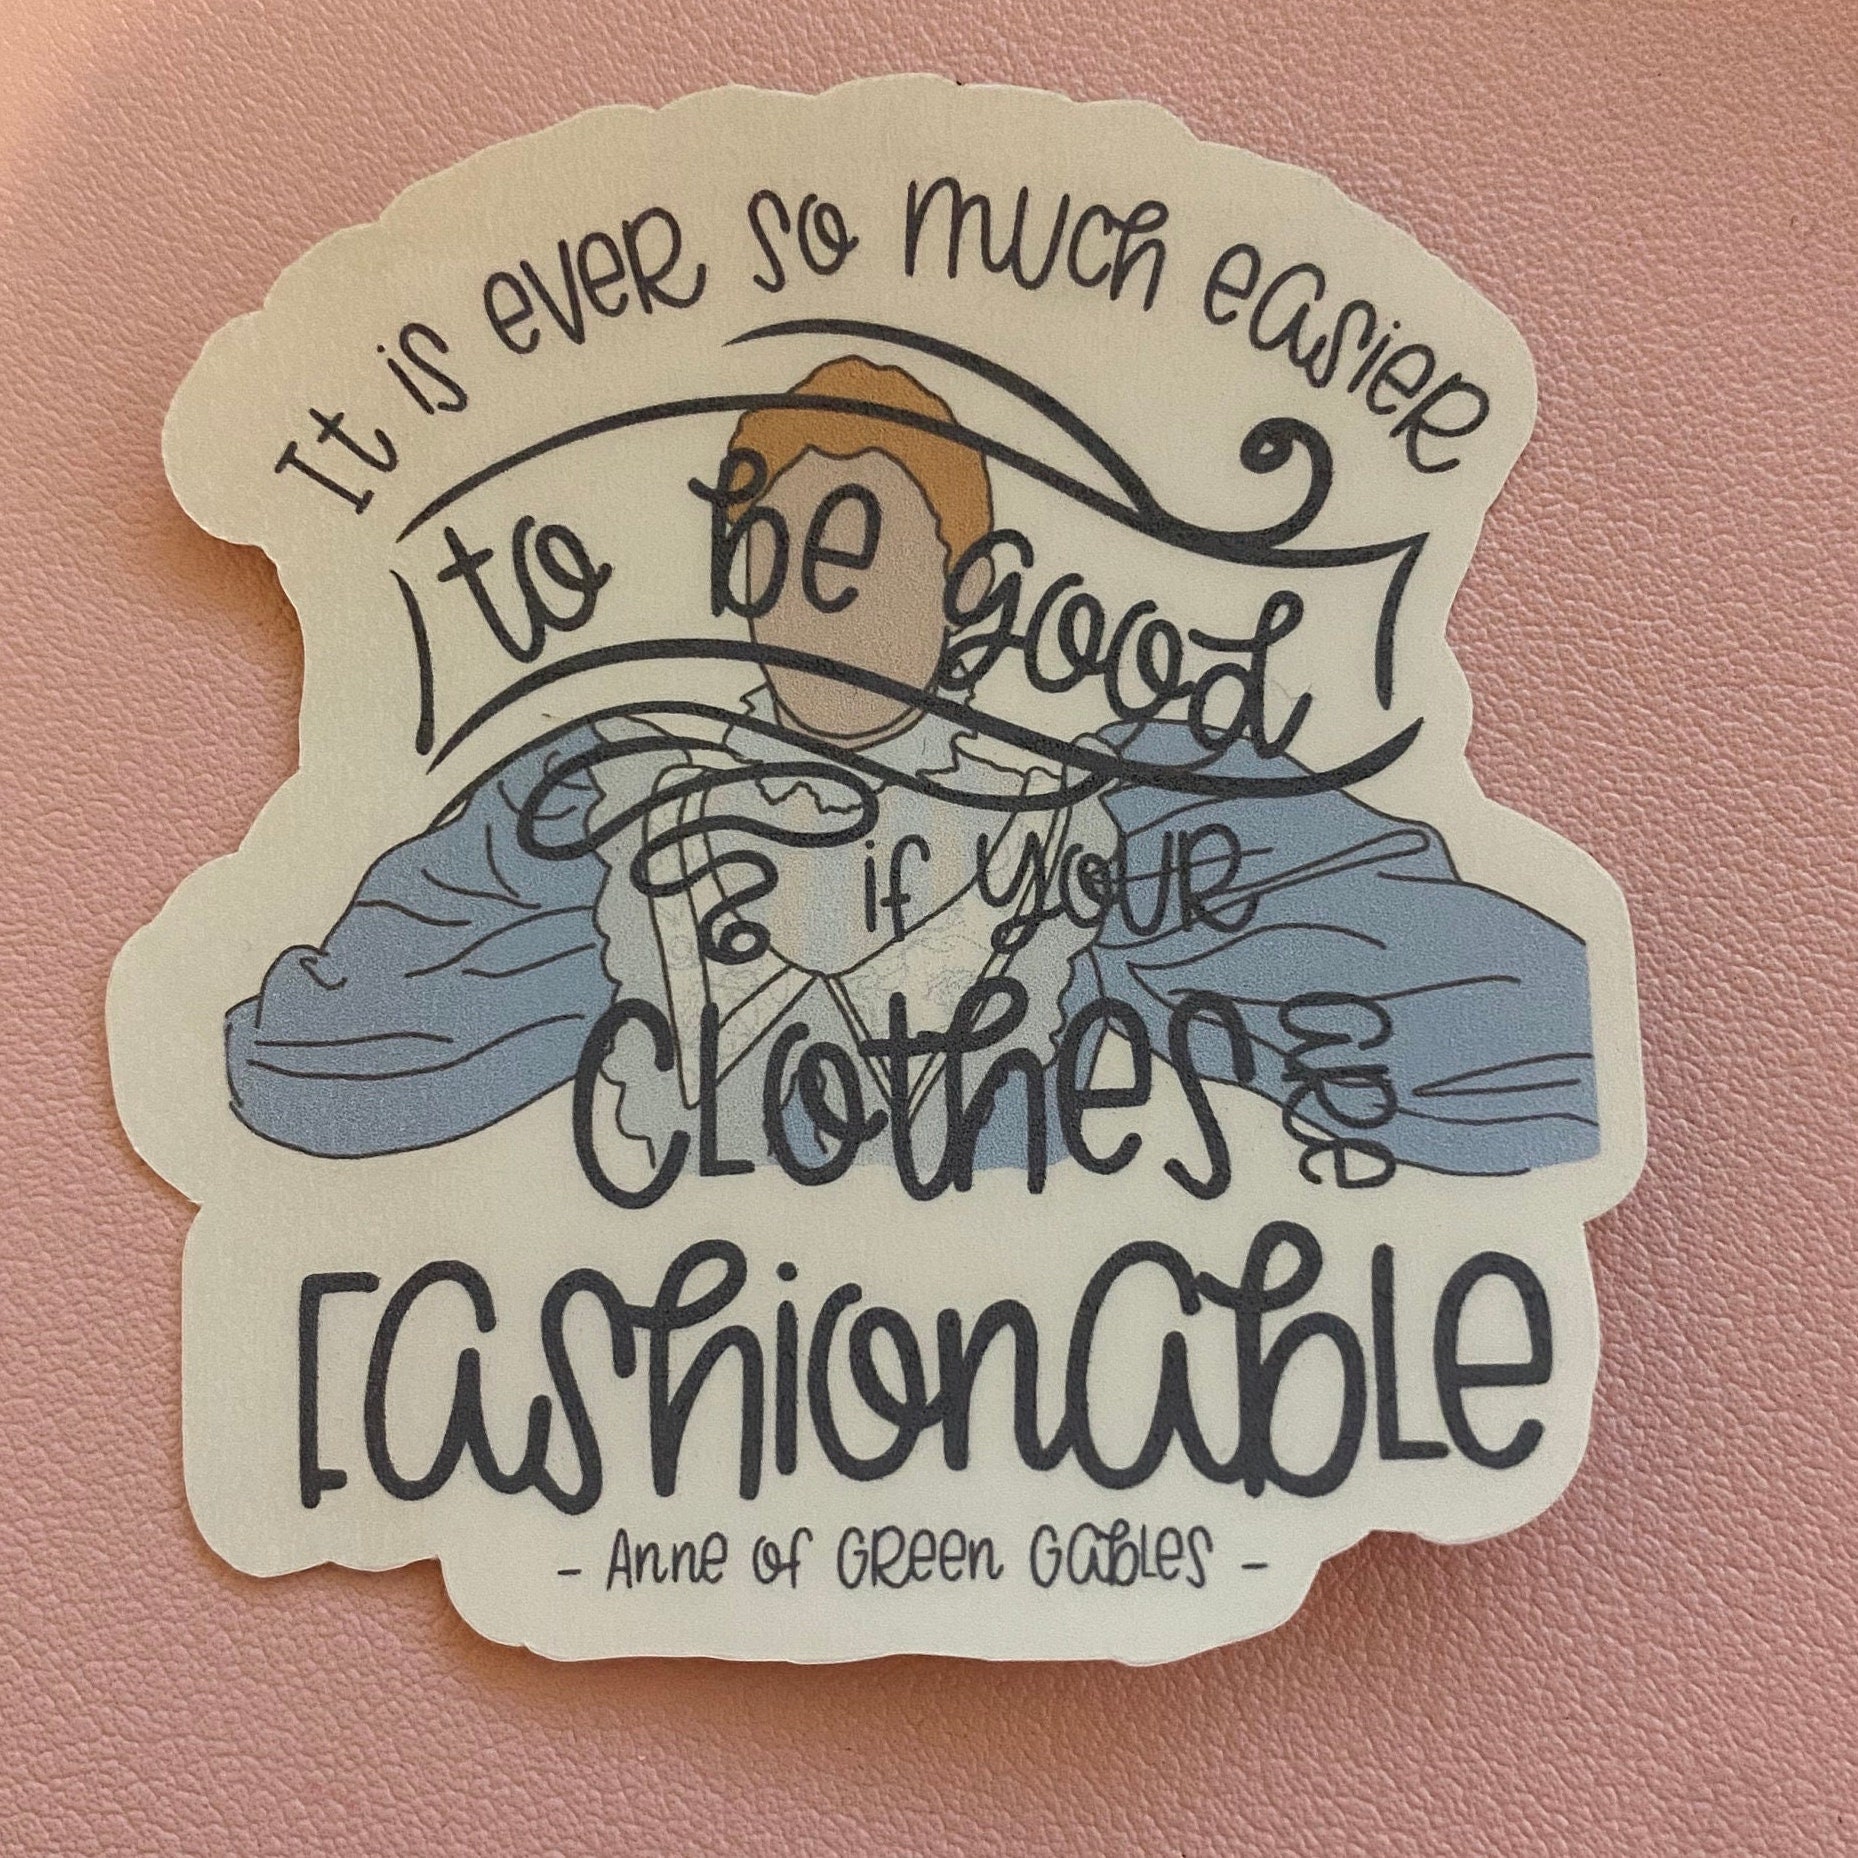 It is ever so much easier
to be good
if your
clothes are
Fashionable
- Anne of Green Gables -